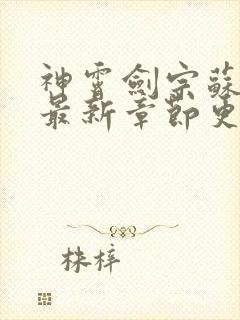 神霄劍宗蘇
最新章節更
株梓